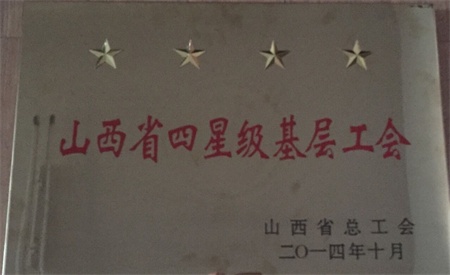 山西省四星级基层工会
山西省总工会
二〇一四年十月